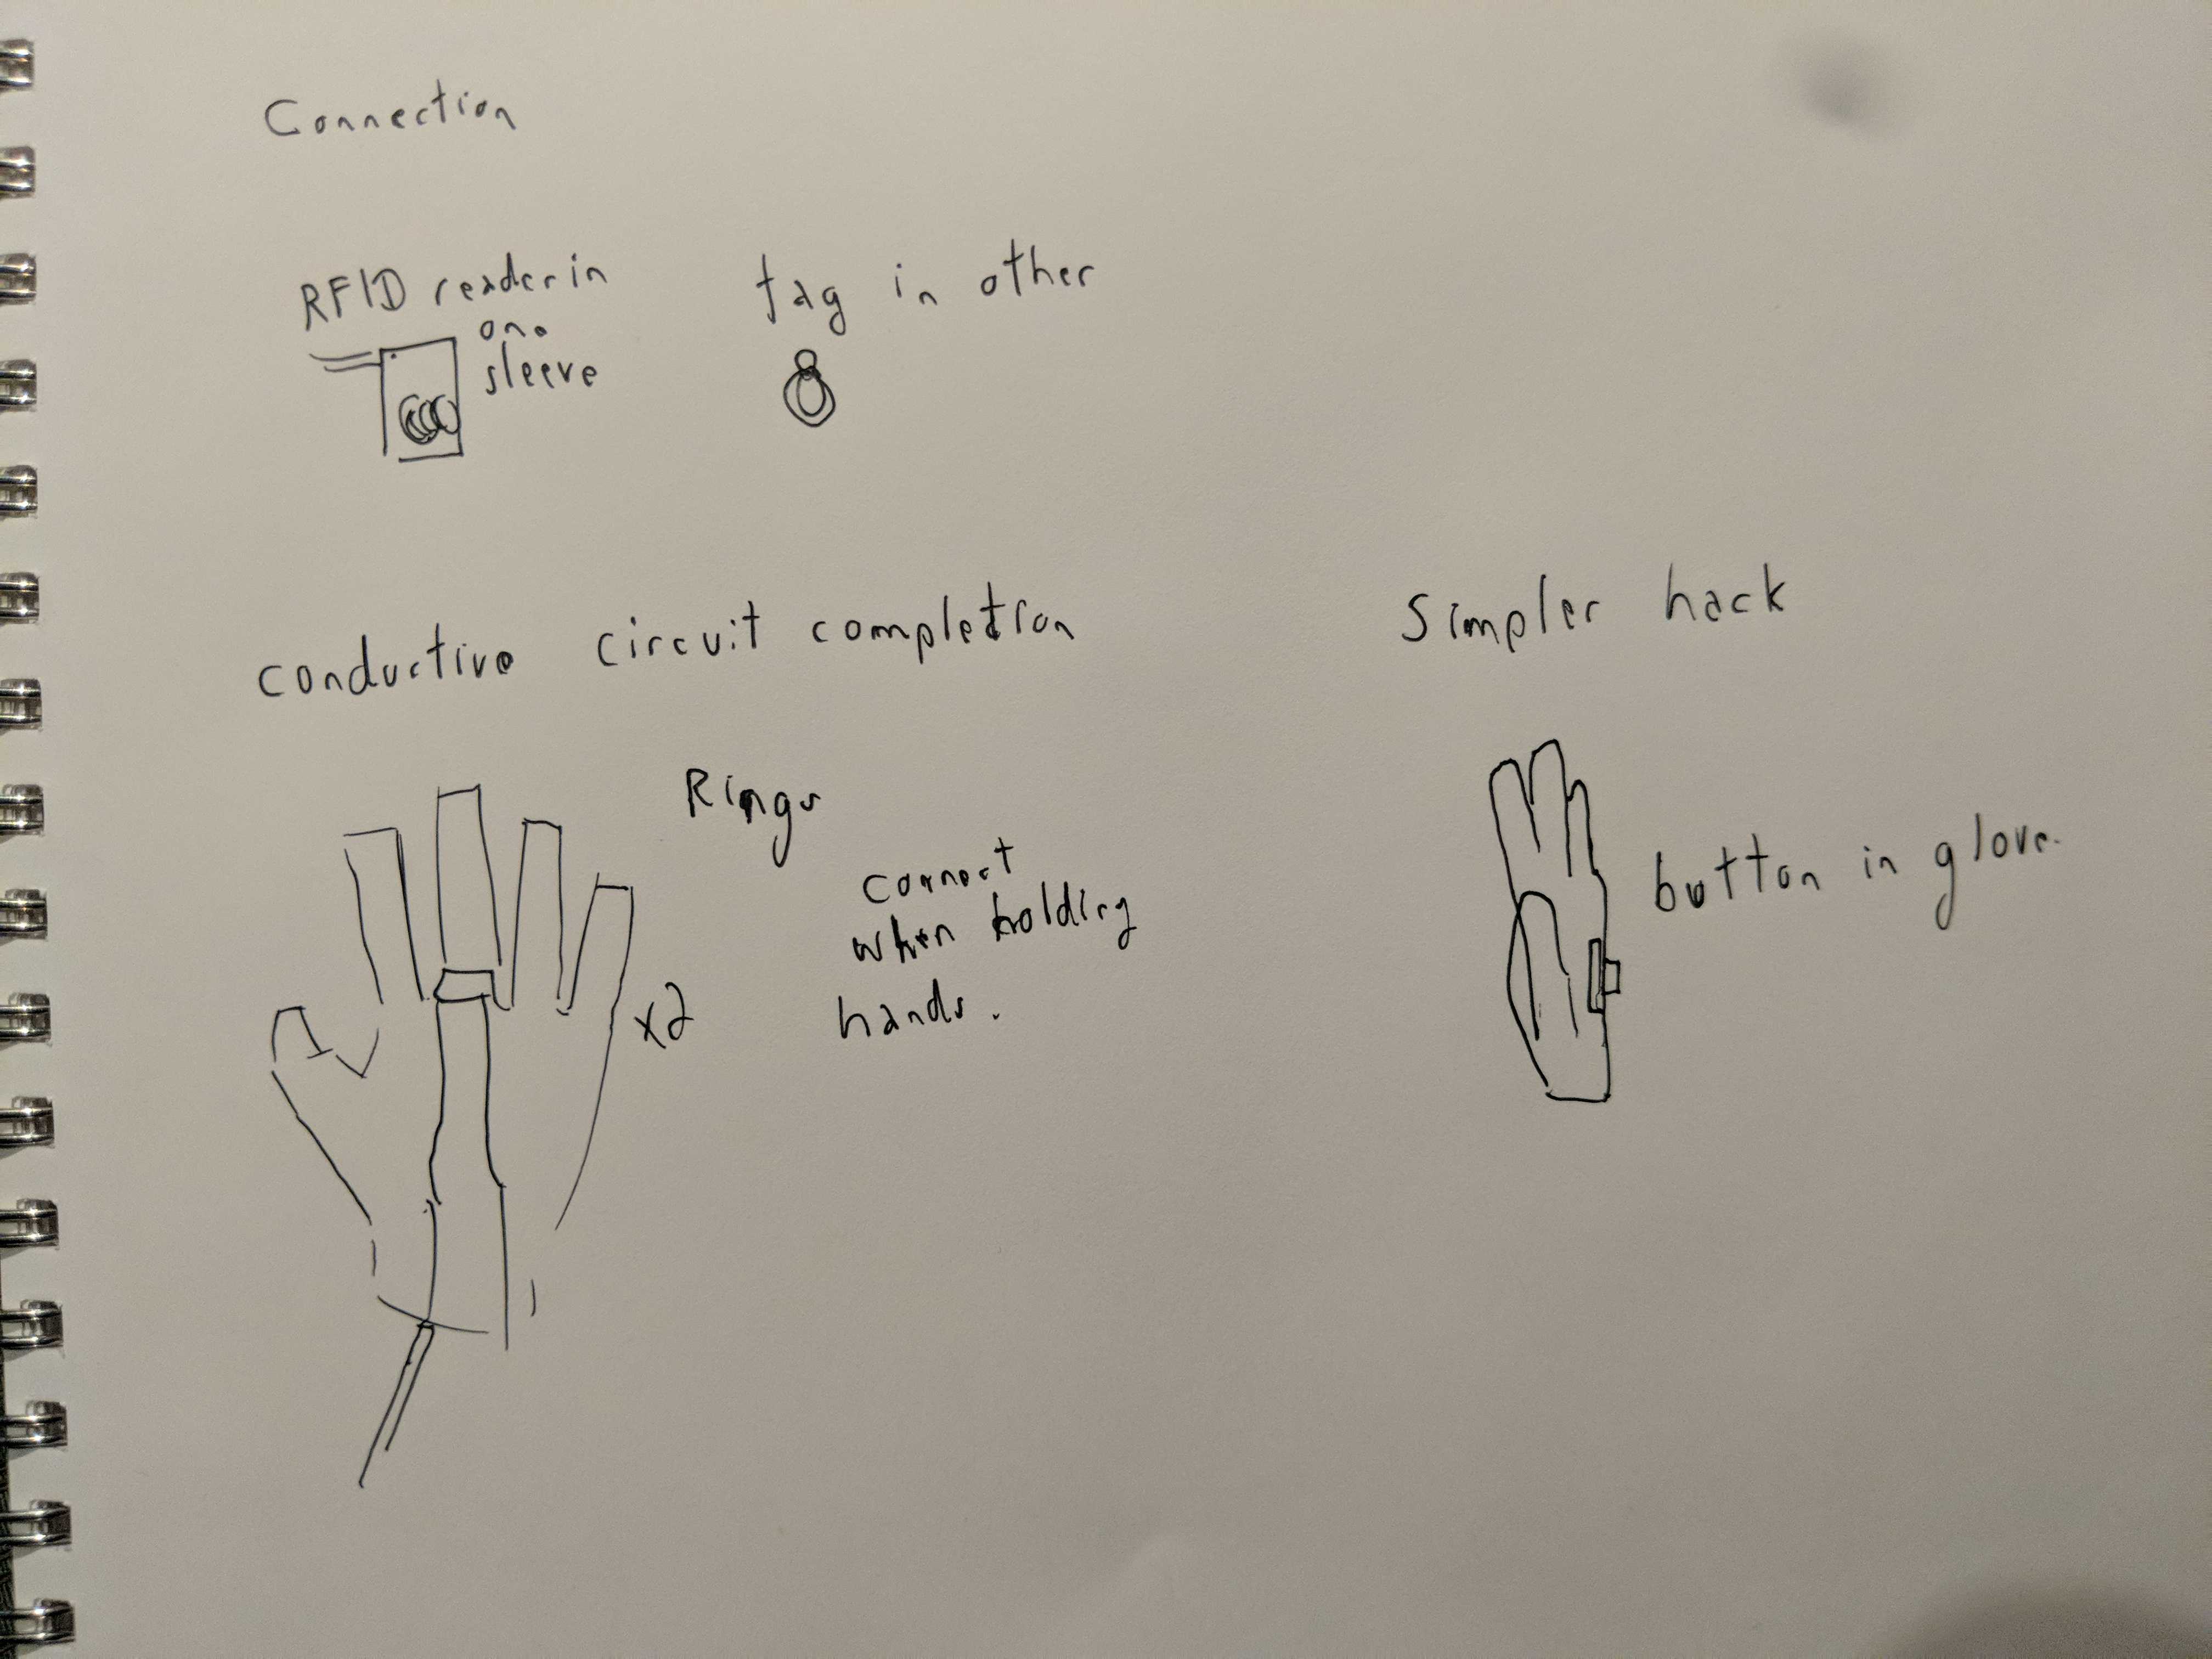 Connection
RFID reader in
one
sleeve
tag in other
conductive circuit completion
Simpler hack
Rings
connect
when holding
hands.
x2
button in glove.